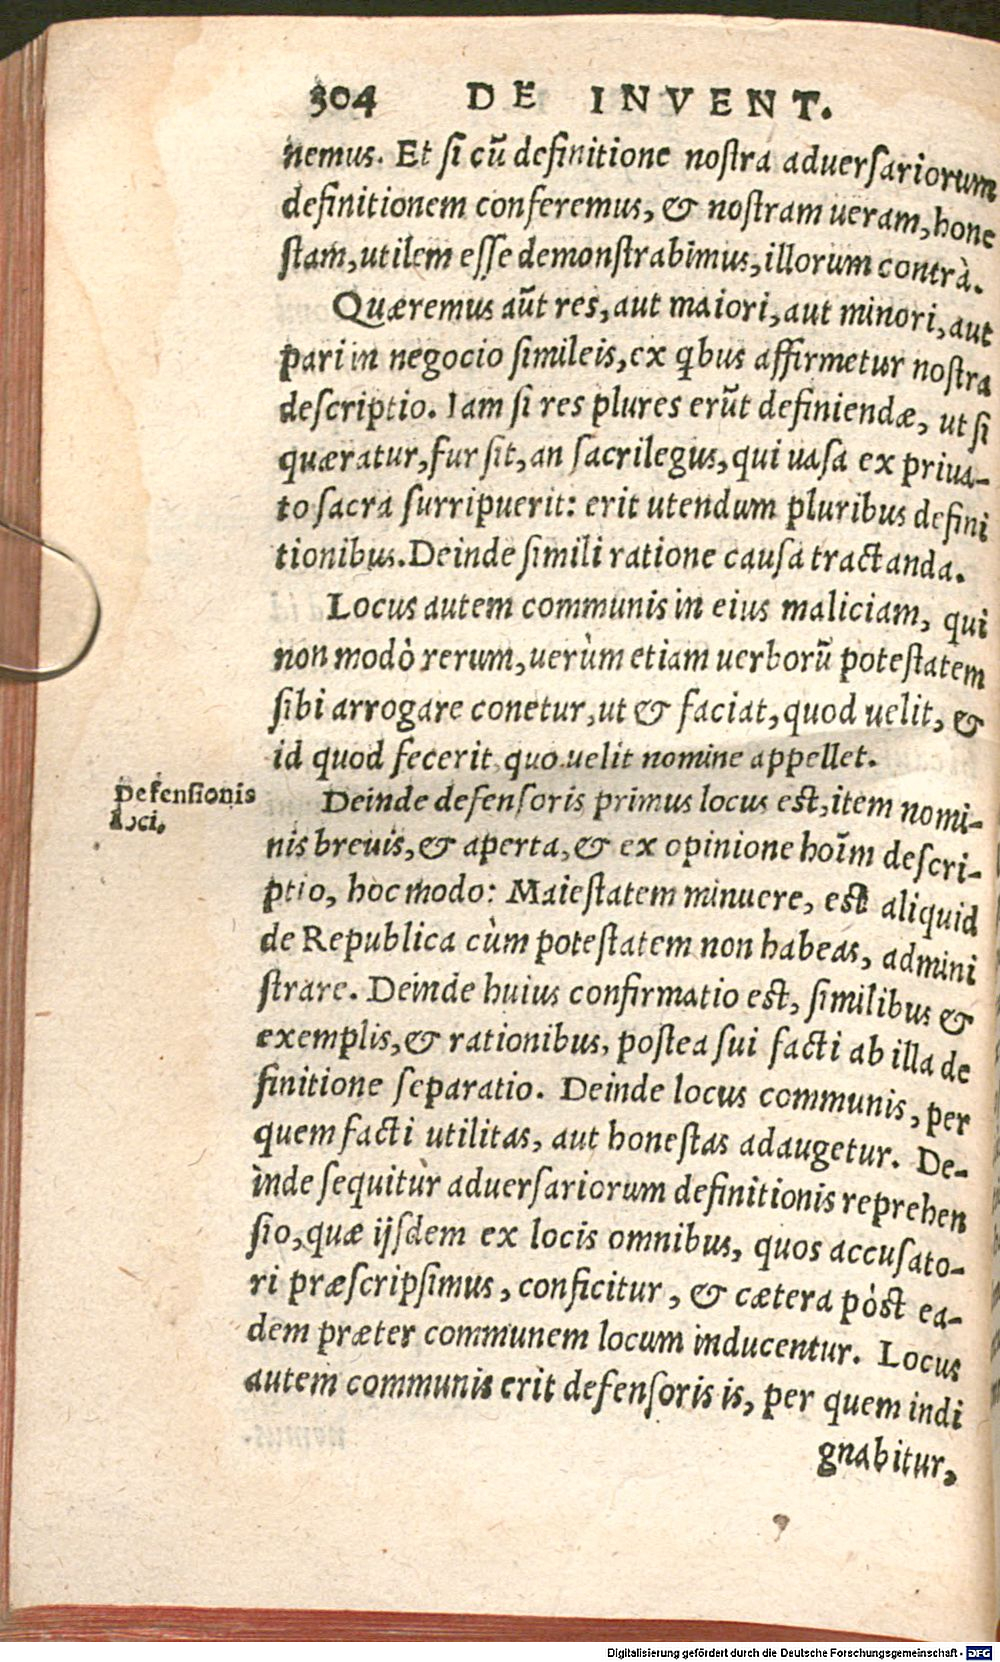 304 DE INVENT.
nemus. Et ſi cū definitione noſtra aduerſariorum
definitionem conferemus, & noſtram ueram, hone
ſtam, utilem eſſe demonſtrabimus, illorum contrà.
Quæremus aūt res, aut maiori, aut minori, aut
pari in negocio ſimileis, ex q̃bus affirmetur noſtra
deſcriptio. Iam ſi res plures erūt definiendæ, ut ſi
quæratur, fur ſit, an ſacrilegus, qui uaſa ex priua-
to ſacra ſurripuerit: erit utendum pluribus defini
tionibus. Deinde ſimili ratione cauſa tractanda.
Locus autem communis in eius maliciam, qui
non modò rerum, uerùm etiam uerborū poteſtatem
ſibi arrogare conetur, ut & faciat, quod uelit, &
id quod fecerit, quo uelit nomine appellet.
Defenſionis
loci.
Deinde defenſoris primus locus eſt, item nomi-
nis breuis, & aperta, & ex opinione hoīm deſcri-
ptio, hoc modo: Maieſtatem minuere, eſt aliquid
de Republica cùm poteſtatem non habeas, admini
ſtrare. Deinde huius confirmatio eſt, ſimilibus &
exemplis, & rationibus, poſtea ſui facti ab illa de
finitione ſeparatio. Deinde locus communis, per
quem facti utilitas, aut honeſtas adaugetur. De-
inde ſequitur aduerſariorum definitionis reprehen
ſio, quæ ijſdem ex locis omnibus, quos accuſato-
ri præſcripſimus, conficitur, & cætera pòſt ea-
dem præter communem locum inducentur. Locus
autem communis erit defenſoris is, per quem indi
gnabitur,
Digitalisierung gefördert durch die Deutsche Forschungsgemeinschaft - DFG